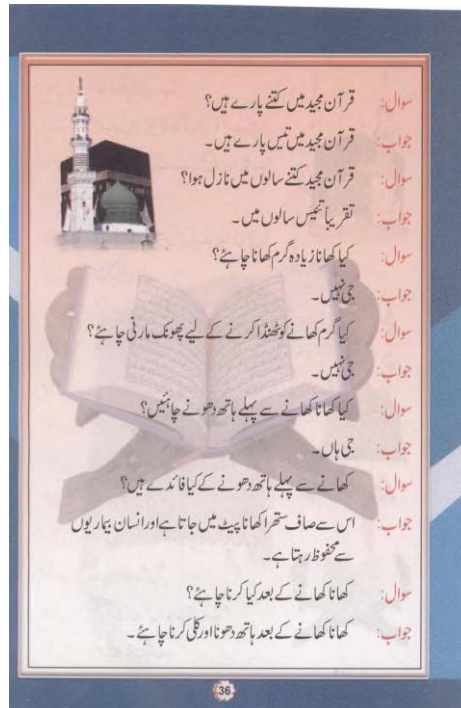 سوال: قرآن مجید میں کتنے پارے ہیں؟
جواب: قرآن مجید میں تیس پارے ہیں۔
سوال: قرآن مجید کتنے سالوں میں نازل ہوا؟
جواب: تقریباً تئیس سالوں میں۔
سوال: کیا کھانا زیادہ گرم کھانا چاہئے؟
جواب: جی نہیں۔
سوال: کیا گرم کھانے کو ٹھنڈا کرنے کے لیے پھونک مارنی چاہئے؟
جواب: جی نہیں۔
سوال: کیا کھانا کھانے سے پہلے ہاتھ دھونے چاہئیں؟
جواب: جی ہاں۔
سوال: کھانے سے پہلے ہاتھ دھونے کے کیا فائدے ہیں؟
جواب: اس سے صاف ستھرا کھانا پیٹ میں جاتا ہے اور انسان بیماریوں
سے محفوظ رہتا ہے۔
سوال: کھانا کھانے کے بعد کیا کرنا چاہئے؟
جواب: کھانا کھانے کے بعد ہاتھ دھونا اور کلی کرنا چاہئے۔
36